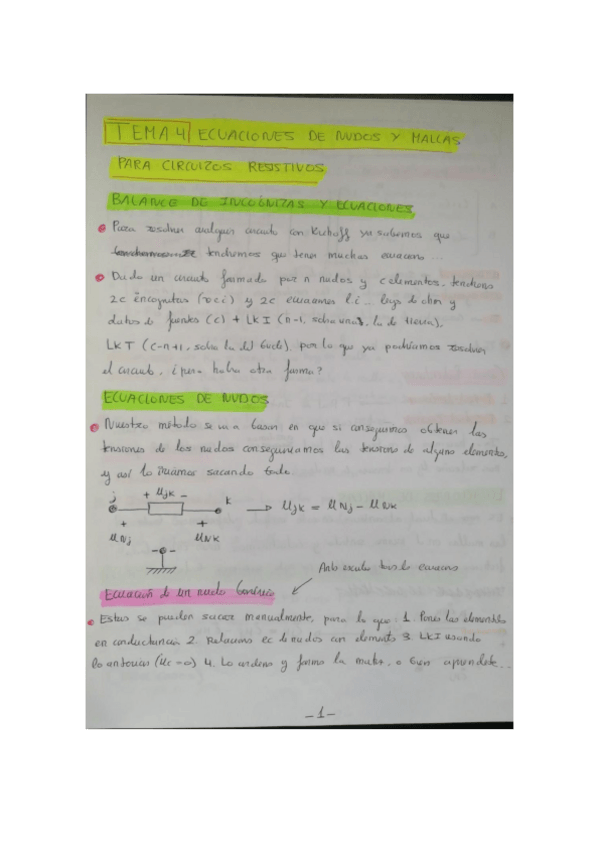 TEMA 4 ECUACIONES DE NUDOS Y MALLAS
PARA CIRCUITOS RESISTIVOS
BALANCE DE INCÓGNITAS Y ECUACIONES
Para resolver cualquier circuito con Kirhoff ya sabemos que
tendremos que tener muchas ecuacions...
Dado un circuito formado por n nudos y c elementos, tendrems
2c incognitas (v e i) y 2c ecuaciones
datos de fuentes (c) + LKI (n-1, sobra una, la de tierra),
LKT (c-n+1, sobra la del bucle) por lo que ya podríamos resolver
el circuito, ¿pero habrá otra forma?
ECUACIONES DE NUDOS
Nuestro método se va a basar en que si conseguimos obtener las
tensiones de los nudos conseguiríamos las tensions de alguno elementos,
y así lo iríamos sacando todo
j + Ujk - k → Ujk = UNj - UNk
+ +
UNj UNk
- -
Ecuación de un nudo Genérico
Estas se pueden sacar manualmente, para lo que: 1. Pones los elementos
en conductancia 2. Relacions ec de nudos con elemento 3. LKI usando
lo antorior 4. Lo ordeno y formo la matriz, o bien aprendete...
-1-